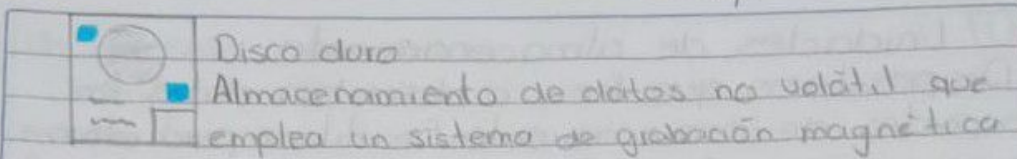 Disco duro
Almacenamiento de datos no volátil que
emplea un sistema de grabación magnética